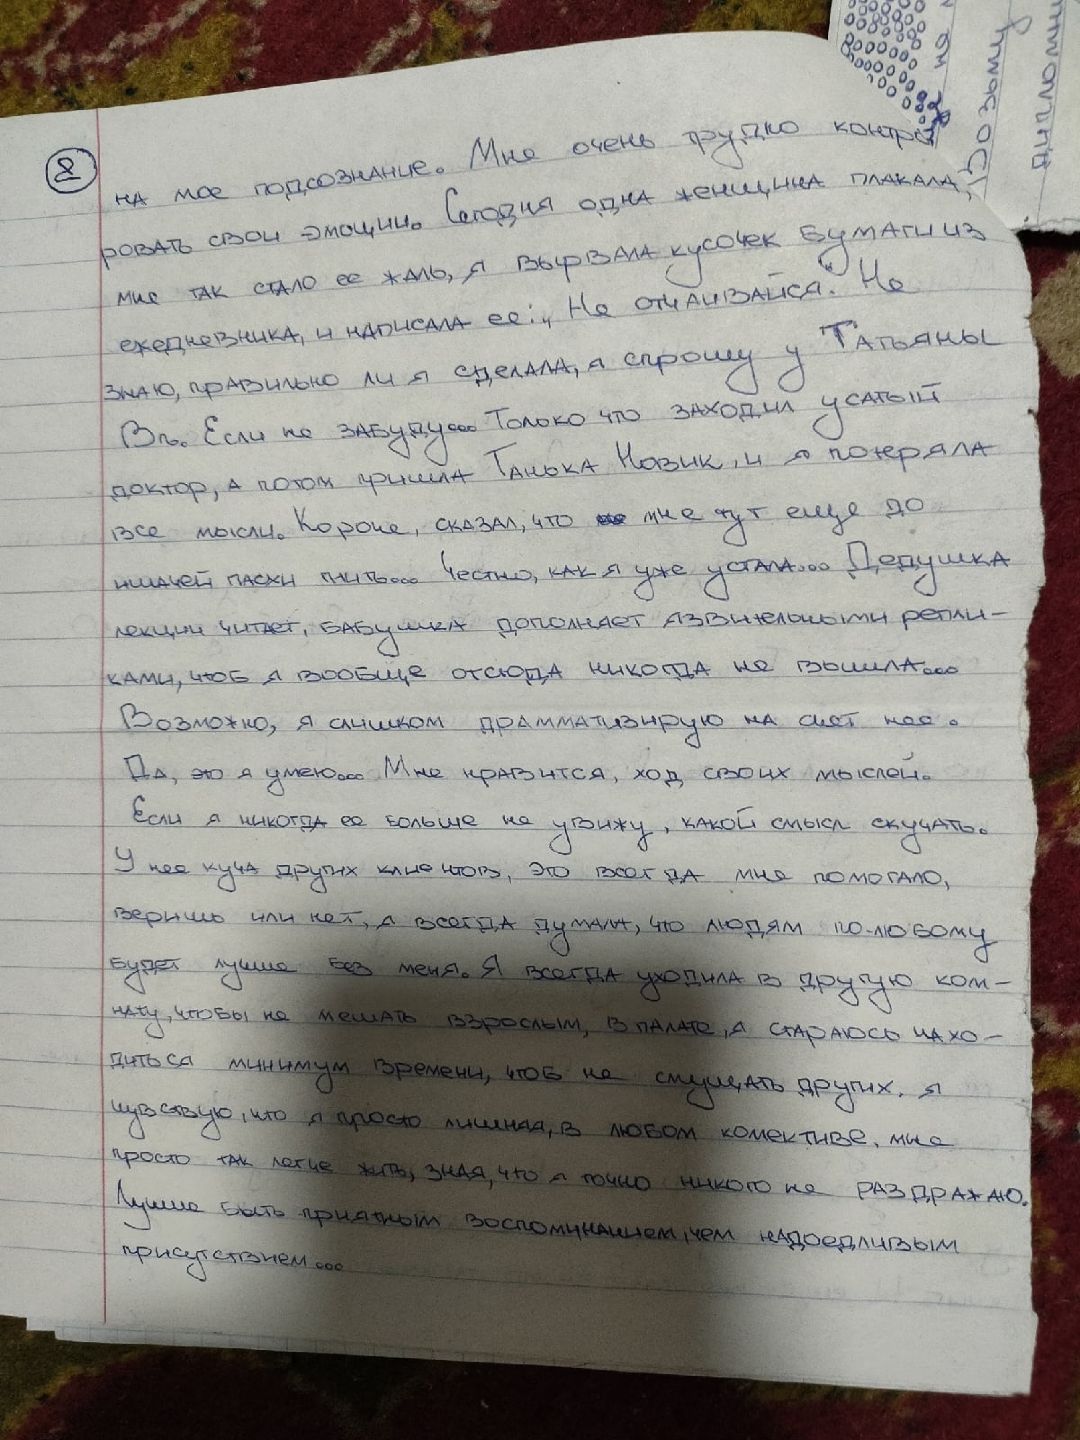 8
на мое подсознание. Мне очень трудно контро
ровать свои эмоции. Сегодня одна женщина плакала,
мне так стало ее жаль, я вырвала кусочек бумаги из
ежедневника, и написала ее: „Не отчаивайся." Не
знаю, правильно ли я сделала, я спрошу у Татьяны
Вл. Если не забуду... Только что заходил усатый
доктор, а потом пришла Танька Новик, и я потеряла
все мысли. Короче, сказал, что мне тут еще до
пасхи гнить... Честно, как я уже устала... Дедушка
лекции читает, бабушка дополняет язвительными репли-
ками, чтоб я вообще отсюда никогда не вышла...
Возможно, я слишком драмматизирую на счет нее.
Да, это я умею... Мне нравится, ход своих мыслей.
Если я никогда ее больше не увижу, какой смысл скучать.
У нее куча других клиентов, это всегда мне помогало,
веришь или нет, я всегда думала, что людям по-любому
будет лучше без меня. Я всегда уходила в другую ком-
нату, чтобы не мешать взрослым, в палате, я стараюсь нахо-
диться минимум времени, чтоб не смущать других, я
чувствую, что я просто лишняя, в любом колективе, мне
просто так легче жить, зная, что я точно никого не раздражаю.
Лучше быть приятным воспоминанием, чем надоедливым
присутствием...